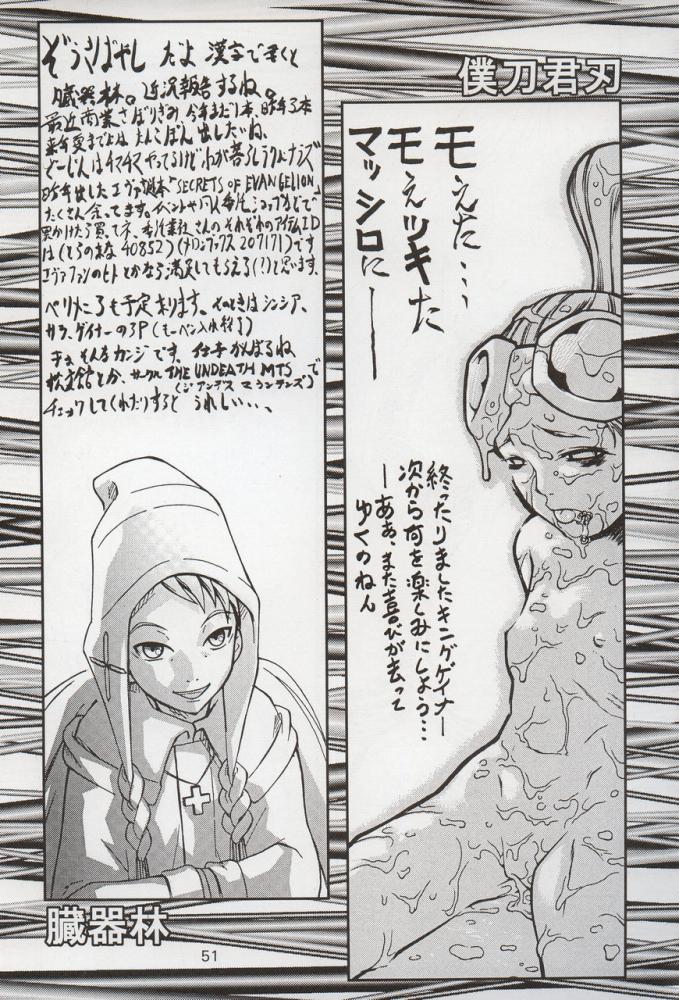 僕刀君刃
モえた…
モえツキた
マッシロにー
終ったりましたキングゲイナー
次から何を楽しみにしよう…
ーあぁ、また喜びが去って
ゆくのねん
ぞうきばやし だよ 漢字で書くと
臓器林。近況報告するね。
最近商業さぼりぎみ、今年まだ1本、昨年3本
来年夏までには たんこぼん出したいね、
どーじんはチマチマやってるけどわが暮らしラクにならず
昨年出したエヴァ 本「SECRETS OF EVANGELION」
たくさん余ってます。イベントや同人 ショップなどで
見かけたら買ってネ
は(とらのあな 40852)(メロンブックス 207171)です
エヴァファンのヒトとかなら満足してもらえる(?)と思います。
ペリメニ3も予定あります。そのときはシンシア、
サラ、ゲイナーの3P
まぁ そんなカンジです。仕事がんばるね
松文館とか、サークル THE UNDEATH MTS で
(ジ アンデス マウンテンズ)
チェックしてくれたりすると うれしい…、
臓器林
51